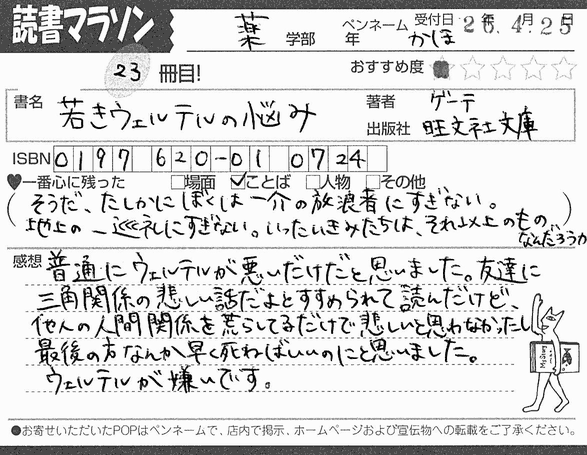 読書マラソン
薬 学部 年 ペンネーム かほ 受付日 26年4月25日
23 冊目! おすすめ度 ★☆☆☆☆
書名 若きウェルテルの悩み
著者 ゲーテ
出版社 旺文社文庫
ISBN 0197 620-01 0724
♥一番心に残った □場面 ☑ことば □人物 □その他
(そうだ、たしかにぼくは一介の放浪者にすぎない。
地上の一巡礼にすぎない。いったいきみたちは、それ以上のもの
なんだろうか)
感想 普通にウェルテルが悪いだけだと思いました。友達に
三角関係の悲しい話だよとすすめられて読んだけど、
他人の人間関係を荒らしてるだけで悲しいと思わなかったし
最後の方なんか早く死ねばいいのにと思いました。
ウェルテルが嫌いです。
●お寄せいただいたPOPはペンネームで、店内で掲示、ホームページおよび宣伝物への転載をご了承ください。